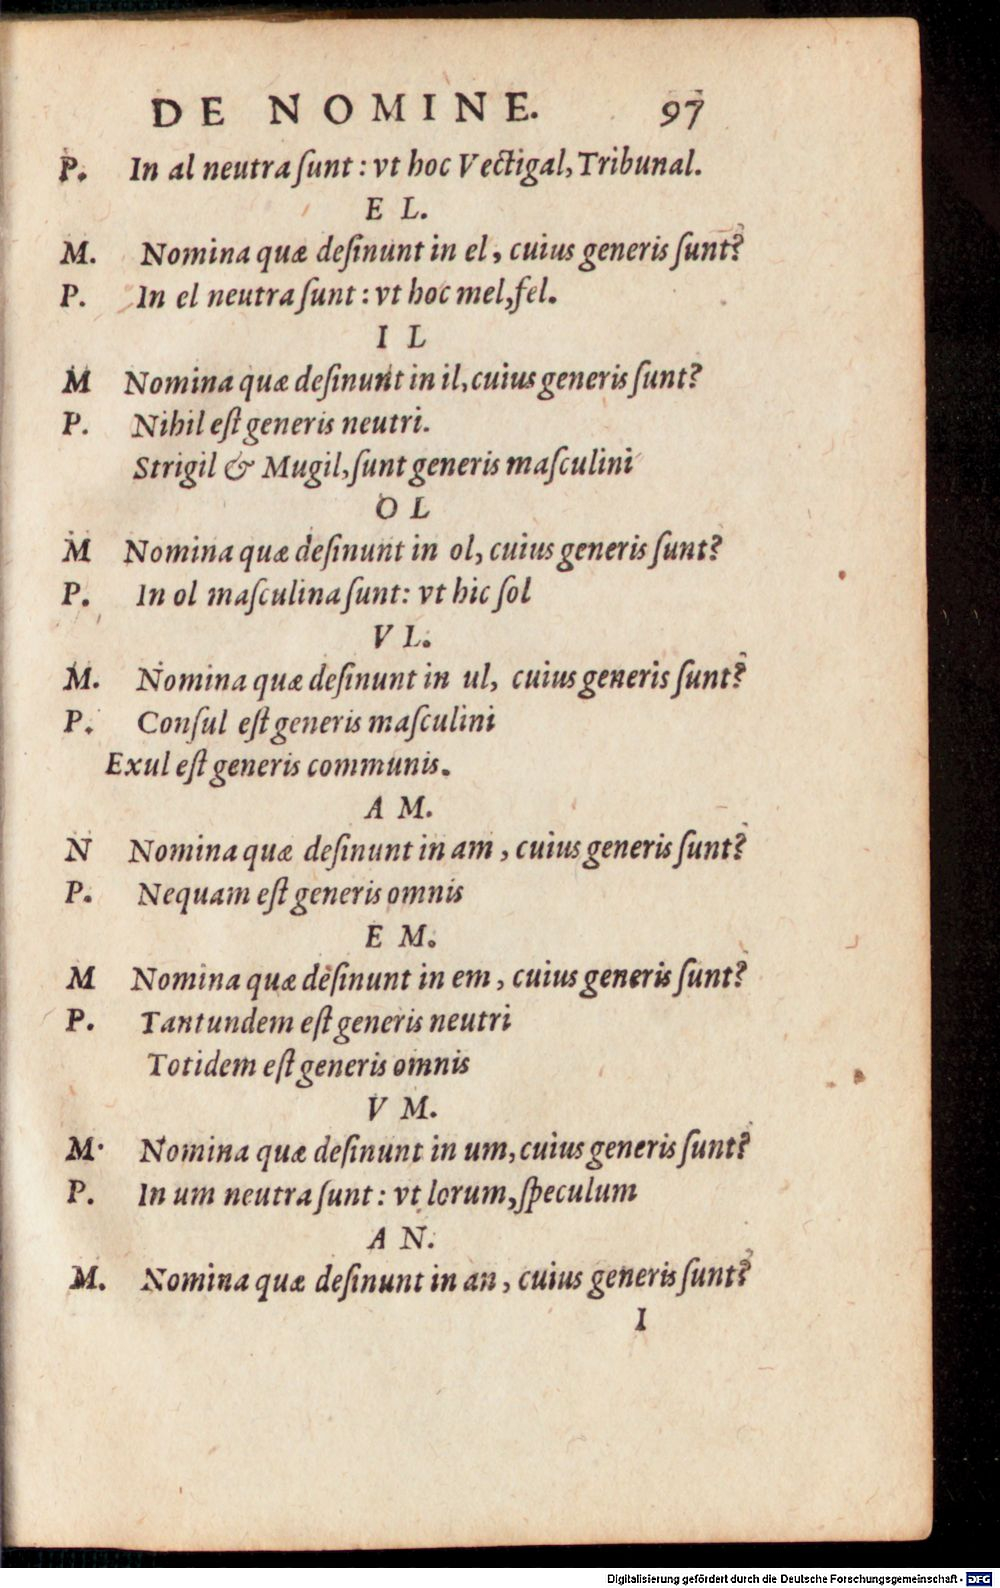 DE NOMINE. 97
P. In al neutra ſunt: vt hoc Vectigal, Tribunal.
E L.
M. Nomina quæ deſinunt in el, cuius generis ſunt?
P. In el neutra ſunt: vt hoc mel, fel.
I L
M Nomina quæ deſinunt in il, cuius generis ſunt?
P. Nihil eſt generis neutri.
Strigil & Mugil, ſunt generis maſculini
O L
M Nomina quæ deſinunt in ol, cuius generis ſunt?
P. In ol maſculina ſunt: vt hic ſol
V L.
M. Nomina quæ deſinunt in ul, cuius generis ſunt?
P. Conſul eſt generis maſculini
Exul eſt generis communis.
A M.
N Nomina quæ deſinunt in am, cuius generis ſunt?
P. Nequam eſt generis omnis
E M.
M Nomina quæ deſinunt in em, cuius generis ſunt?
P. Tantundem eſt generis neutri
Totidem eſt generis omnis
V M.
M· Nomina quæ deſinunt in um, cuius generis ſunt?
P. In um neutra ſunt: vt lorum, ſpeculum
A N.
M. Nomina quæ deſinunt in an, cuius generis ſunt?
I
Digitalisierung gefördert durch die Deutsche Forschungsgemeinschaft - DFG